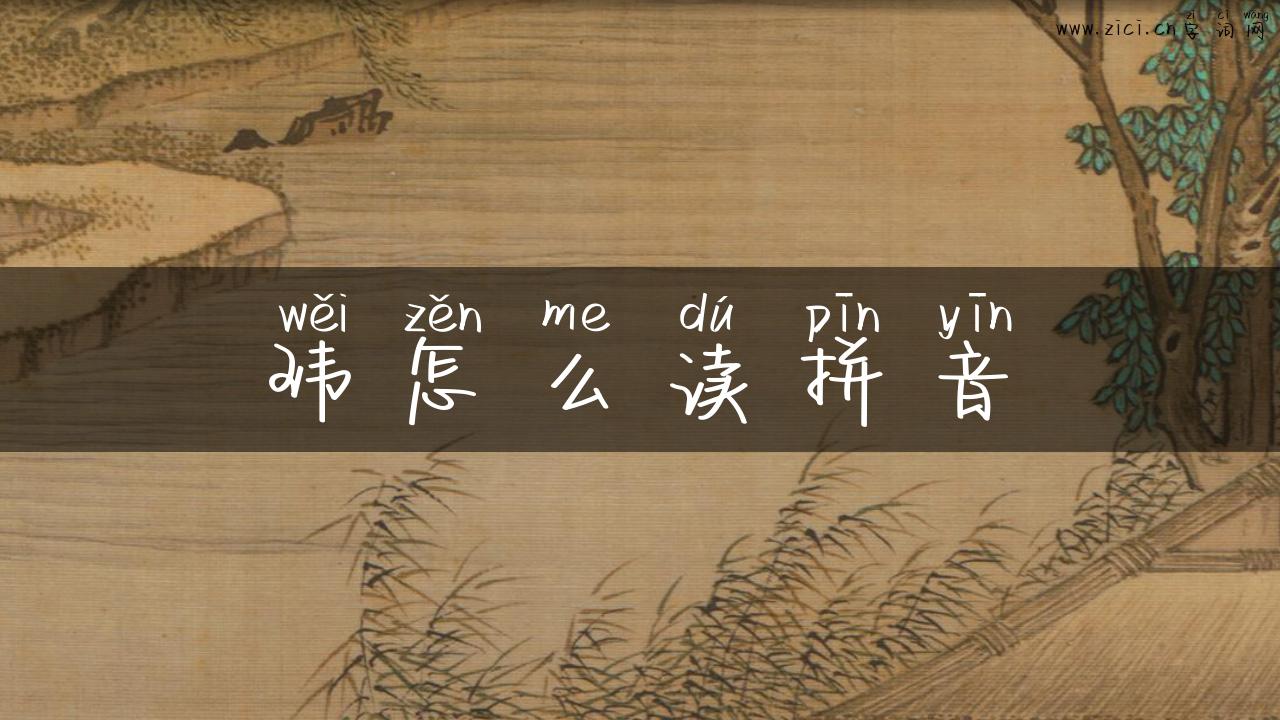 www.zici.cn zì cí wǎng
字词网
wěi zěn me dú pīn yīn
玮怎么读拼音